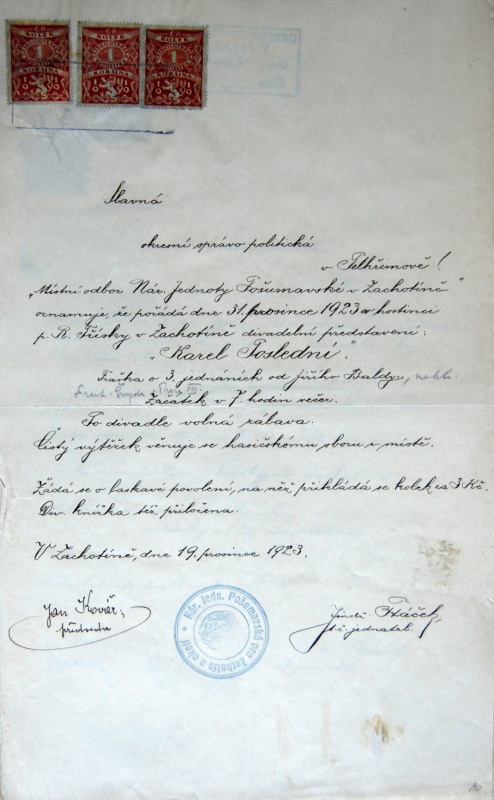 KOLEK KOLEK KOLEK
1 1 1
KORUNA KORUNA KORUNA
Slavná
okresní správo politická
v Pelhřimově!
„Místní odbor Nár. Jednoty Pošumavské v Zachotíně“
oznamuje, že pořádá dne 31. prosince 1923 v hostinci
p. R. Třísky v Zachotíně divadelní představení:
„Karel Poslední“.
Fraška o 3. jednáních od Jiřího Baldy,
Začátek v 7. hodin večer.
Po divadle volná zábava.
Čistý výtěžek věnuje se hasičskému sboru v místě.
Žádá se o laskavé povolení, na něž přikládá se kolek za 3 Kč.
Div. knížka též přiložena.
V Zachotíně, dne 19. prosince 1923.
Jan Kovář,
předseda
Nár. Jedn. Pošumavská pro Zachotín a okolí
Jindř. Ptáček,
t. č. jednatel.
10